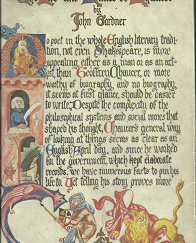 by
John Gardner
No poet in the whole English literary tradi-
tion, not even Shakespeare, is more
appealing, either as a man or as an art-
ist, than Geoffrey Chaucer, or more
worthy of biography, and no biography,
it seems at first glance, should be easier
to write. Despite the complexity of the
philosophical systems and social mores that
shaped his thought, Chaucer's general way
of looking at things seems as clear as an
English April day, and since he worked
for the government, which kept elaborate
records, we have numerous facts to guide
Yet telling his story proves more